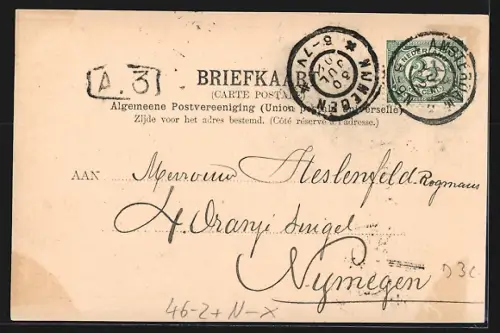 A.3
BRIEFKAAR
(CARTE POSTAL
Algemeene Postvereeniging (Union postale universelle)
Zijde voor het adres bestemd. (Côté réservé à l'adresse.)
NIJMEGEN
5-7V
AMSTERDAM
AAN Mevrouw Heslenfeld-Rogmans
4. Oranje Singel
Nymegen
D3c
46-2+N-X